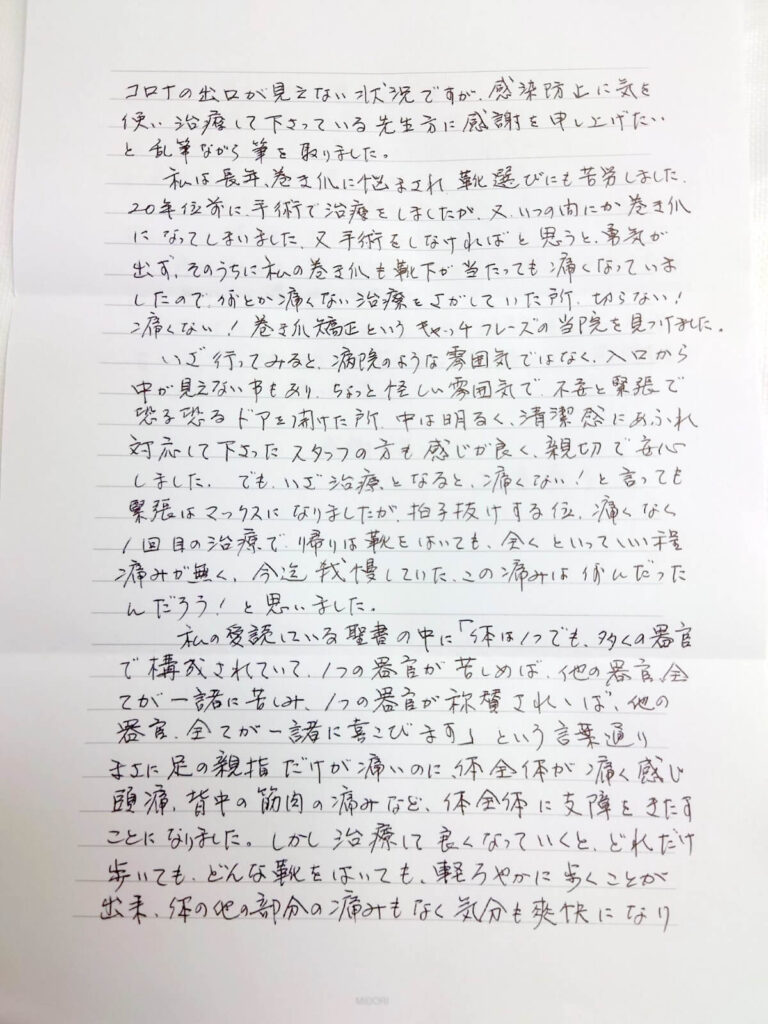 コロナの出口が見えない状況ですが、感染防止に気を
使い治療して下さっている先生方に感謝を申し上げたい
と乱筆ながら筆を取りました。
私は長年、巻き爪に悩まされ靴選びにも苦労しました.
20年位前に、手術で治療をしましたが、又、いつの間にか巻き爪
になってしまいました、又手術をしなければと思うと、勇気が
出ず、そのうちに私の巻き爪も靴下が当たっても痛くなっていま
したので、何とか痛くない治療をさがしていた所、切らない!
痛くない!巻き爪矯正というキャッチフレーズの当院を見つけました.
いざ行ってみると、病院のような雰囲気ではなく、入口から
中が見えない事もあり、ちょっと怪しい雰囲気で、不安と緊張で
恐る恐るドアを開けた所、中は明るく、清潔感にあふれ
対応して下さったスタッフの方も感じが良く、親切で安心
しました. でも、いざ治療となると、痛くない!と言っても
緊張はマックスになりましたが、拍子抜けする位、痛くなく
1回目の治療で、帰りは靴をはいても、全くといっていい程
痛みが無く、今迄我慢していた、この痛みは何んだった
んだろう!と思いました.
私の愛読している聖書の中に「体は1つでも、多くの器官
で構成されていて、1つの器官が苦しめば、他の器官、全
てが一諸に苦しみ、1つの器官が称賛されれば、他の
器官、全てが一諸に喜こびます」という言葉通り
まさに足の親指だけが痛いのに、体全体が痛く感じ
頭痛、背中の筋肉の痛みなど、体全体に支障をきたす
ことになりました。しかし治療して良くなっていくと、どれだけ
歩いても、どんな靴をはいても、軽ろやかに歩くことが
出来、体の他の部分の痛みもなく気分も爽快になり
MIDORI